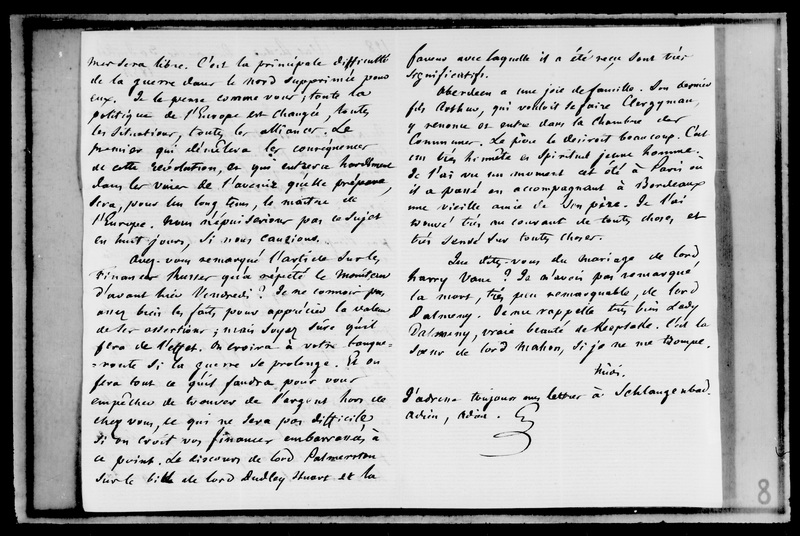 mer sera libre. C'est la principale difficulté
de la guerre dans le nord supprimée pour
eux. Je le pense comme vous ; toute la
politique de l'Europe est changée, toutes
les situations, toutes les alliances. Le
premier qui démêlera les conséquences
de cette révolution, et qui entrera hardiment
dans les voies de l'avenir qu'elle prépare,
sera, pour un long tems, le maître de
l'Europe. Nous n'épuiserions pas ce sujet
en huit jours, si nous causions.
Avez-vous remarqué l'article sur les
finances Russes qu'a répété le moniteur
d'avant hier Vendredi ? Je ne connois pas
assez bien les faits pour apprécier la valeur
de ses assertions ; mais soyez sûre qu'il
fera de l'effet. On croira à votre banque-
-route si la guerre se prolonge. Et on
fera tout ce qu'il faudra pour vous
empêcher de trouver de l'argent hors de
chez vous, ce qui ne sera pas difficile
si on croit vos finances embarrassées à
ce point. Le discours de lord Palmerston
sur le bill de lord Dudley Stuart et la
faveur avec laquelle il a été reçu sont très
significatifs.
Aberdeen a une joie de famille. Son dernier
fils Arthur, qui vouloit se faire Clergyman,
y renonce et entre dans la Chambre des
Communes. Le père le desiroit beaucoup. C'est
un très honnête et spirituel jeune homme.
Je l'ai vu un moment cet été à Paris où
il a passé en accompagnant à Bordeaux
une vieille amie de son père. Je l'ai
trouvé très au courant de toutes choses et
très sensé sur toutes choses.
Que dites-vous du mariage de lord
harry Vane ? Je n'avois pas remarqué
la mort, très peu remarquable, de lord
Dalmeny. Je me rappelle très bien Lady
Dalmeny, vraie beauté de Keepsake. C'est la
sœur de lord Mahon, si je ne me trompe.
Midi.
J'adresse toujours mes lettres à Schlangenbad.
Adieu, Adieu. G
8